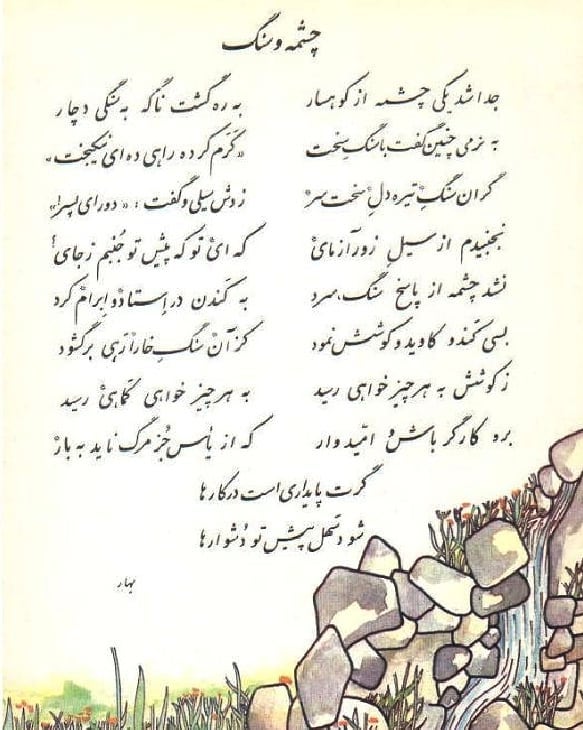 چشمه و سنگ
جدا شد یکی چشمه از کوهسار به ره گشت ناگه به سنگی دچار
به نرمی چنین گفت با سنگ سخت «کَرَم کرده راهی ده ای نیکبخت»
گران سنگِ تیره دلِ سخت سر زدش سیلی و گفت: «دور ای پسر!»
نجنبیدم از سیلِ زورآزمای که ای تو که پیش تو جُنبم ز جای؟
نشد چشمه از پاسخ سنگ، سرد به کَندن در اِستاد و اِبرام کرد
بسی کَند و کاوید و کوشش نمود کز آن سنگِ خارا رَهی برگشود
ز کوشش به هر چیز خواهی رسید به هر چیز خواهی کَماهی رسید
برو کارگر باش و امّیدوار که از یأس جُز مرگ ناید به بار
گرت پایداری است در کارها
شود سَهل پیش تو دُشوارها
بهار